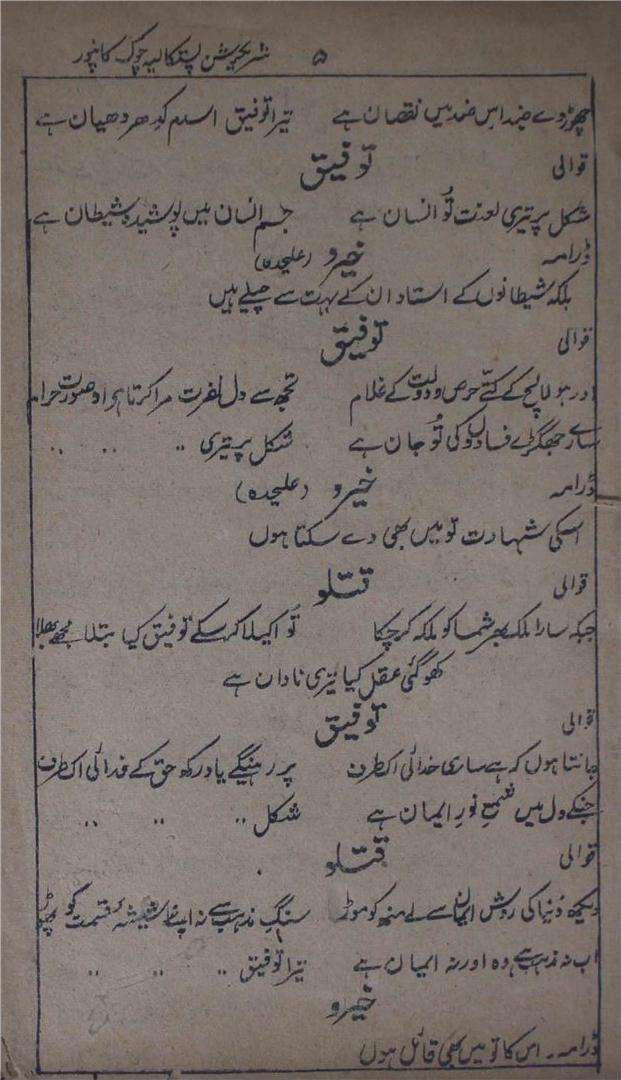 ۵ شریکرشن پستکالیہ چوک کانپور
چھوڑ دے ضد اس ضد میں نقصان ہے تیرا توفیق اسدم کدھر دھیان ہے
قوالی توفیق
شکل پر تیری لعنت تُو انسان ہے جسم انسان میں پوشیدہ شیطان ہے
ڈرامہ خیرو (علیحدہ)
بلکہ شیطانوں کے استاد ان کے بہت سے چیلے ہیں
قوالی توفیق
اور ہو لالچ کے کتے حرص و دولت کے غلام تجھ سے دل نفرت مرا کرتا ہے او صورت حرام
سارے جھگڑے فسادوں کی تُو جان ہے شکل پر تیری ״ ״ ״
ڈرامہ خیرو (علیحدہ)
اسکی شہادت تو میں بھی دے سکتا ہوں
قوالی قتلو
جبکہ سارا ملک بھر شما کو ملکہ کر چکا تُو اکیلا کر سکے توفیق کیا بتلا مجھے بھلا
کھو گئی عقل کیا تیری نادان ہے
قوالی توفیق
جانتا ہوں کہ ہے ساری خدائی اکطرف پر رہینگے یاد رکھ حق کے فدائی اکطرف
جنکے دل میں شمعِ نورِ ایمان ہے شکل ״ ״ ״
قوالی قتلو
دیکھ دُنیا کی روش ایمان سے لے منہ کو موڑ سنگِ مذہب سے نہ اپنے شیشۂ قسمت کو پھوڑ
اب نہ مذہب ہے وہ اور نہ ایمان ہے تیرا توفیق ״ ״ ״
خیرو
ڈرامہ۔ اس کا تو میں بھی قائل ہوں